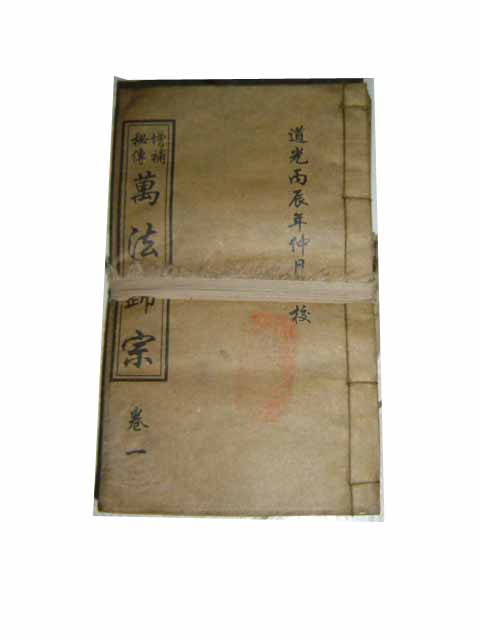 道光丙辰年仲月校
增補
秘傳
萬法歸宗
卷一